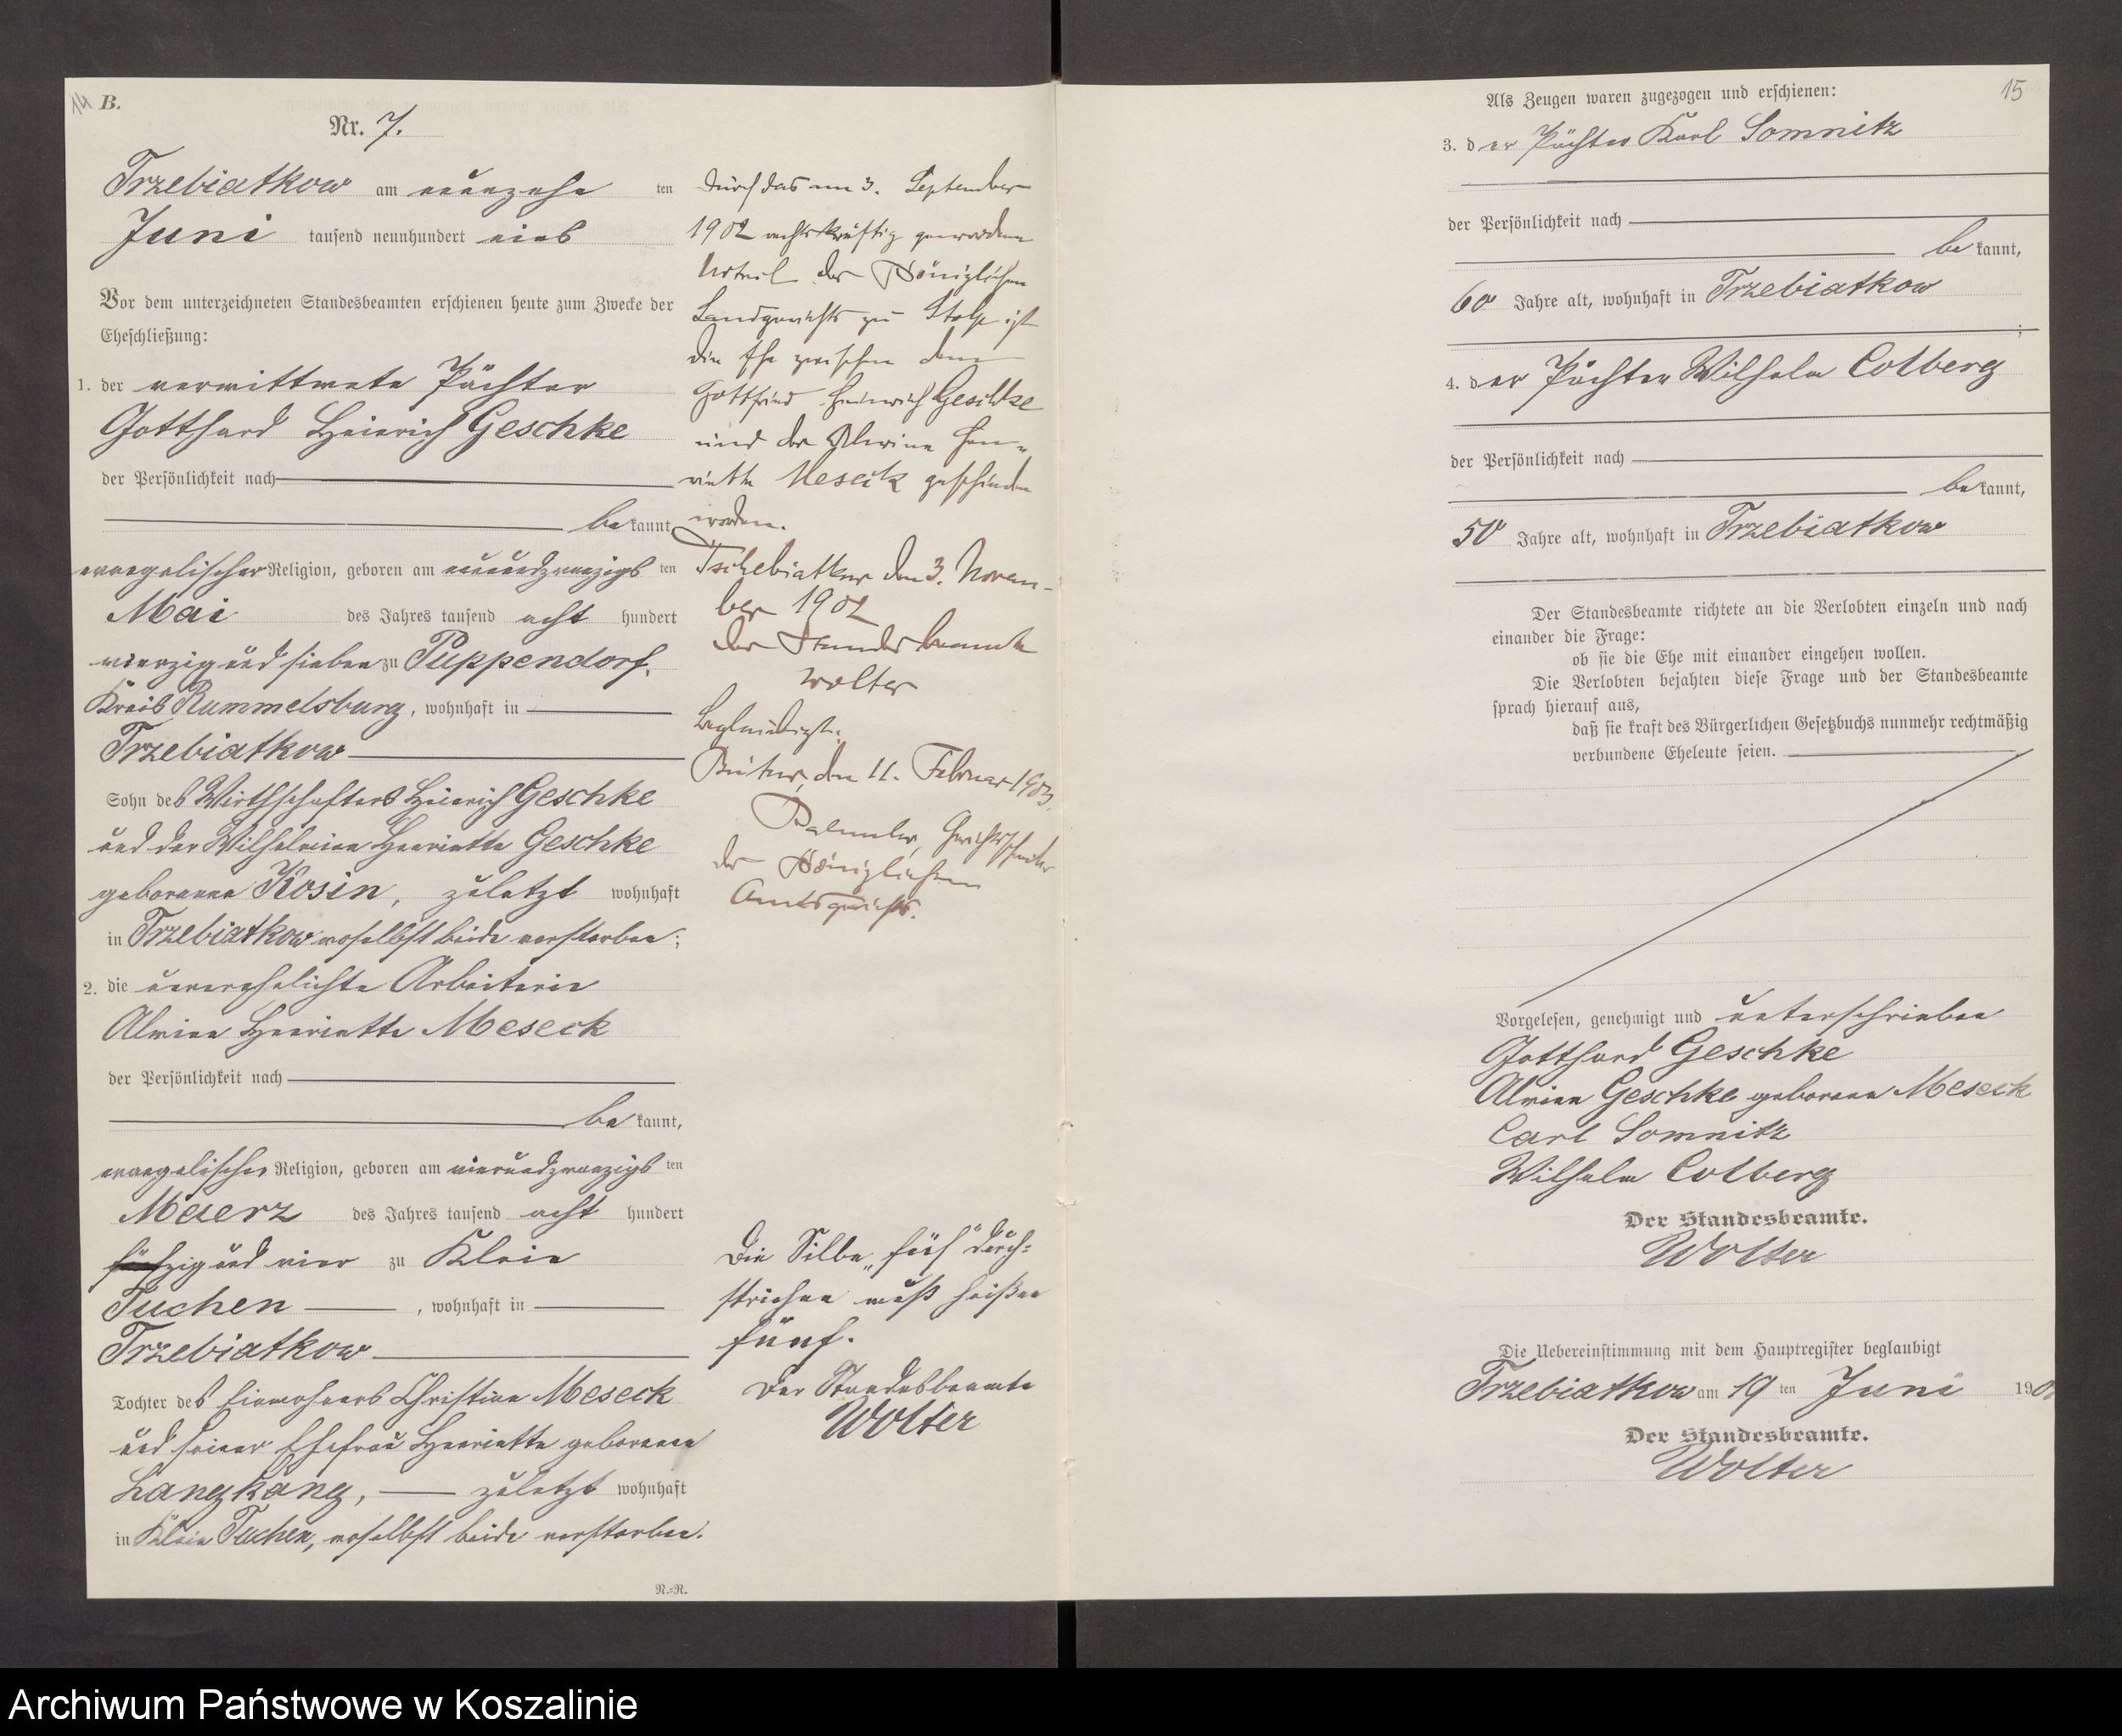 14
B.
Nr. 7.
Trzebiatkow am neunzehn ten
Juni tausend neunhundert eins
Vor dem unterzeichneten Standesbeamten erschienen heute zum Zwecke der
Eheschließung:
1. der verwittwete Pächter
Gotthard Heinrich Geschke
der Persönlichkeit nach
bekannt,
evangelischer Religion, geboren am neunundzwanzigs ten
Mai des Jahres tausend acht hundert
vierzig und sieben zu Puppendorf,
Kreis Rummelsburg, wohnhaft in
Trzebiatkow
Sohn des Wirthschafters Heinrich Geschke
und der Wilhelmine Henriette Geschke
geborenen Kosin, zuletzt wohnhaft
in Trzebiatkow woselbst beide verstorben;
2. die unverehelichte Arbeiterin
Alwine Henriette Meseck
der Persönlichkeit nach
bekannt,
evangelischer Religion, geboren am vierundzwanzigs ten
Maerz des Jahres tausend acht hundert
fünfzig und vier zu Klein
Tuchen, wohnhaft in
Trzebiatkow
Tochter des Einwohners Christian Meseck
und seiner Ehefrau Henriette geborenen
Langkang, zuletzt wohnhaft
in Klein Tuchen, woselbst beide verstorben.
R.=R.
Durch das am 3. September
1902 rechtskräftig gewordene
Urteil des Königlichen
Landgerichts zu Stolp ist
die Ehe zwischen dem
Gottfried Heinrich Geschke
und der Alwine Hen-
riette Meseck geschieden
worden.
Tschebiatkow den 3. Novem-
ber 1902
Der Standesbeamte
Wolter
Beglaubigt:
Bütow, den 11. Februar 1903.
Gerichtsschreiber
des Königlichen
Amtsgerichts.
Die Silbe „fünf" durch-
strichen muß heißen
fünf.
Der Standesbeamte
Wolter
15
Als Zeugen waren zugezogen und erschienen:
3. der Pächter Karl Somnitz
der Persönlichkeit nach
bekannt,
60 Jahre alt, wohnhaft in Trzebiatkow
;
4. der Pächter Wilhelm Colberg
der Persönlichkeit nach
bekannt,
50 Jahre alt, wohnhaft in Trzebiatkow
Der Standesbeamte richtete an die Verlobten einzeln und nach
einander die Frage:
ob sie die Ehe mit einander eingehen wollen.
Die Verlobten bejahten diese Frage und der Standesbeamte
sprach hierauf aus,
daß sie kraft des Bürgerlichen Gesetzbuchs nunmehr rechtmäßig
verbundene Eheleute seien.
Vorgelesen, genehmigt und unterschrieben
Gotthard Geschke
Alwine Geschke geborene Meseck
Carl Somnitz
Wilhelm Colberg
Der Standesbeamte.
Wolter
Die Uebereinstimmung mit dem Hauptregister beglaubigt
Trzebiatkow am 19 ten Juni 1901
Der Standesbeamte.
Wolter
Archiwum Państwowe w Koszalinie